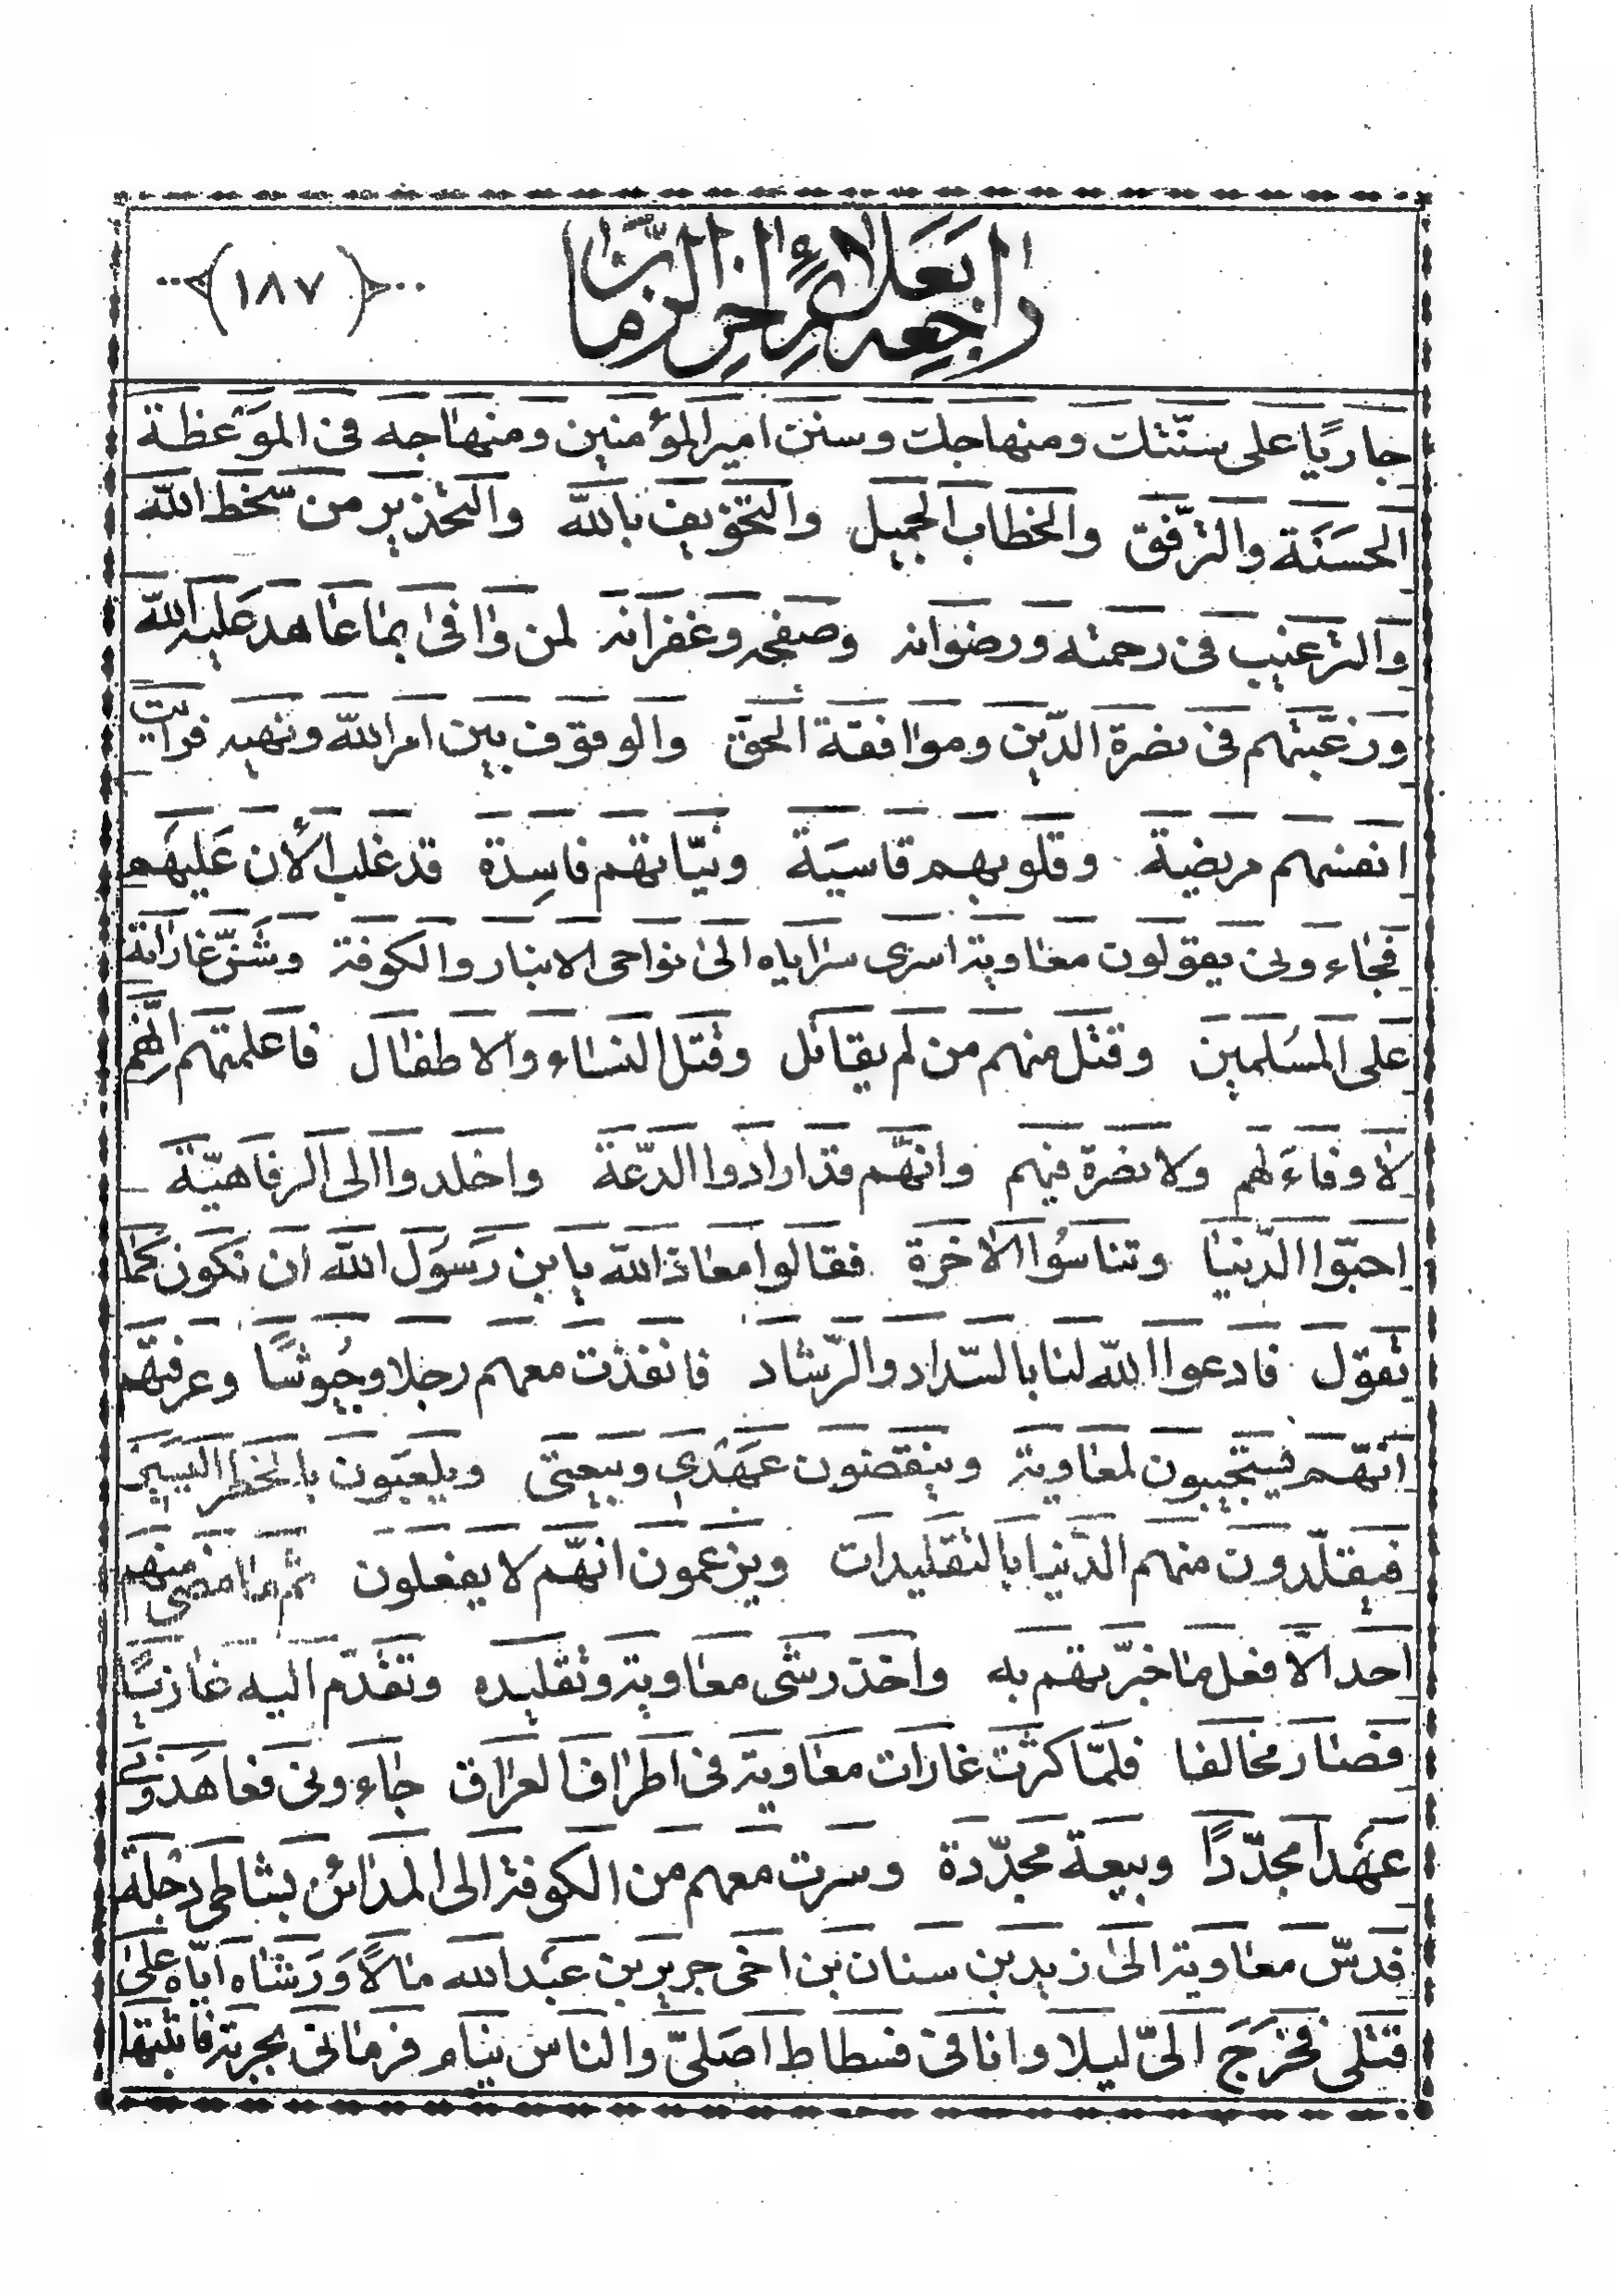 راجعه بعلائم اخر الزمان
﴿١٨٧﴾
جاريًا على سنّتك ومنهاجك وسنن اميرالمؤمنين ومنهاجه فى الموعظة
الحسَنَة والترّفّق والخطاب الجميل والتخويف بالله والتحذير من سخط الله
والترغيب فى رحمته ورضوانه وصفحه وغفرانه لمن وافىٰ بما عاهد عليه الله
ورغّبتهم فى نصرة الدّين وموافقة الحقّ والوقوف بين امرالله ونهيه فرايت
انفسهم مريضة وقلوبهم قاسيَة ونيّاتهم فاسِدة قد غلب الأن عَليهَم
فجاءونى يقولون معاوية اسرى سراياه الىٰ نواحى الانبار والكوفة وشَنّ غاراته
على المسُلمين وقتل منهم من لم يقاتل وقتل النساء والاطفال فاعلمتهم انّهم
لا وفاءَ لهم ولا نصرة فيهم وانّهم قد ارادوا الدّعة واخلدوا الى الرفاهيّة
احبّوا الدّنيا وتناسُوا الاخرة فقالوا معاذ الله يابن رَسوَل الله ان نكون كما
تقول فادعوا الله لنا بالسّداد والرّشاد فانفذت معهم رجلا وجُيوشًا وعرفتهم
انّهم فيستجيبون لمعاوية وينقضون عهدى وبيعتى ويلعبون بالخطر اليسير
فيقلّدون منهم الدّنيا بالتقليدات ويزعمون انّهم لا يفعلون ثم ما مضى منهم
احد الّا فعل ما خبّرتهم به واخذ رشى معاوية وتقليده وتقدّم اليه غازيًا
فصار مخالفا فلمّا كثرت غارات معاوية فى اطراف العراق جاءونى فعاهَدونى
عهدا مجدّدًا وبيعة مجدّدة وسرت معهم من الكوفة الى المدائن بشاطى دجلة
فدسّ معاوية الىٰ زيد بن سنان بن اخى جرير بن عبَد الله مالًا وَرَشاه ايّاه علىٰ
قتلى فخَرَجَ الىّ ليلا وانا فى فسطاط اصَلىّ والناس نيام فرمانى بحربة فاثبتها